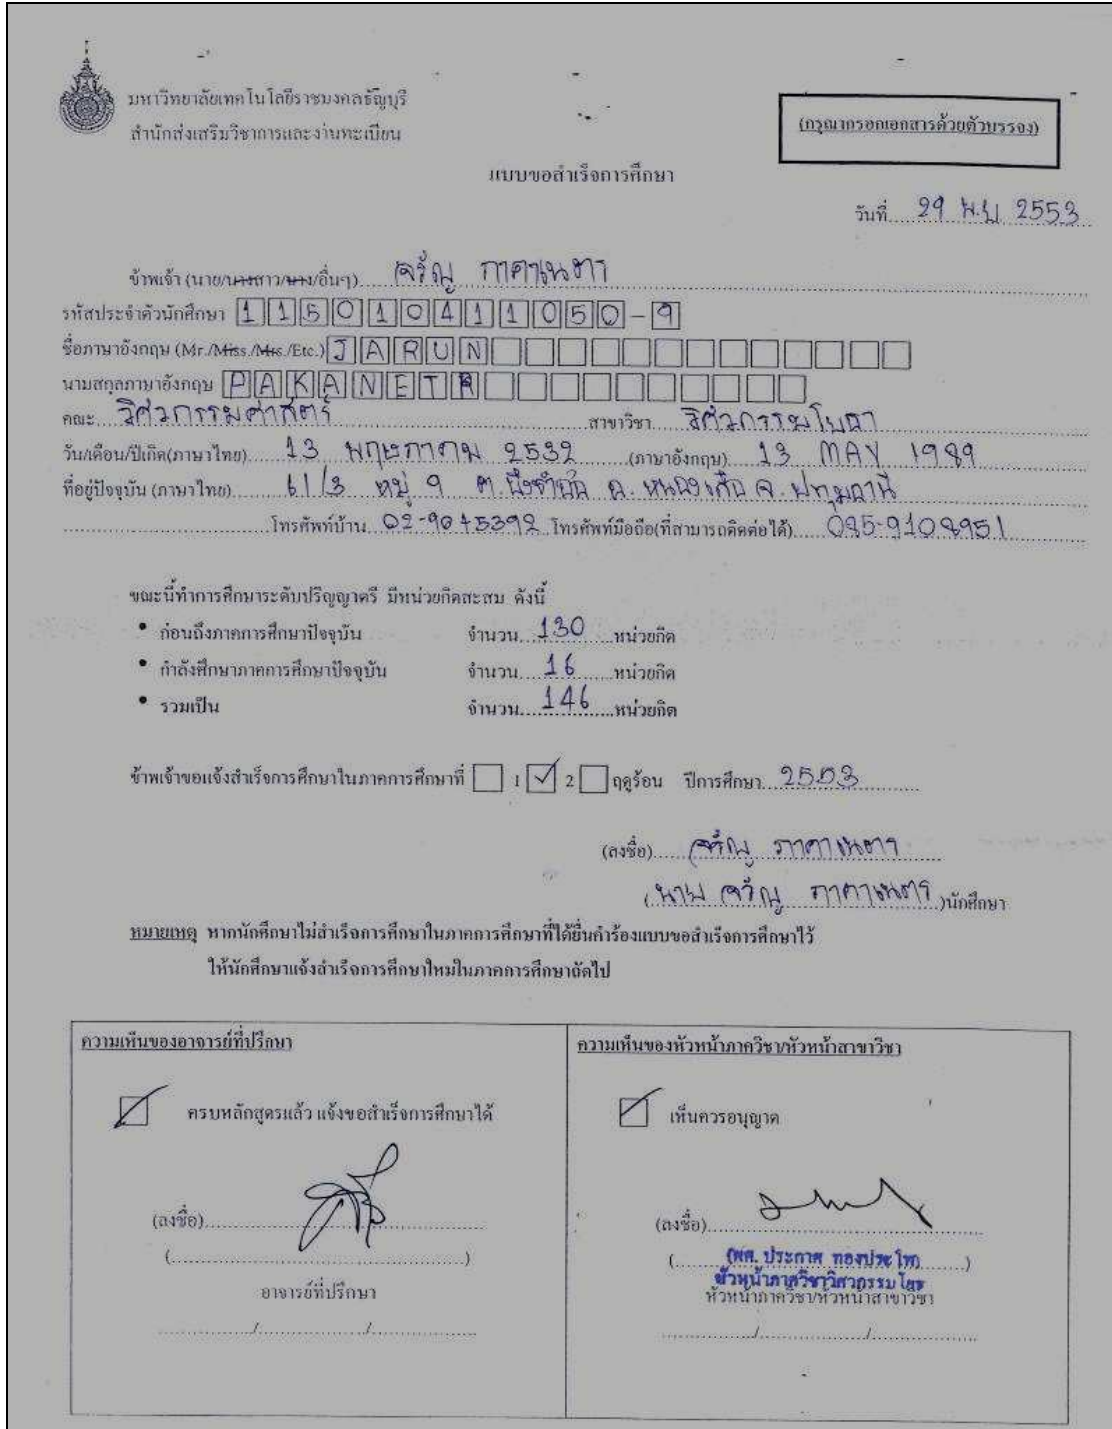 มหาวิทยาลัยเทคโนโลยีราชมงคลธัญบุรี
สำนักส่งเสริมวิชาการและงานทะเบียน
(กรุณากรอกเอกสารด้วยตัวบรรจง)
แบบขอสำเร็จการศึกษา
วันที่ 29 พ.ย. 2553
ข้าพเจ้า (นาย/นางสาว/นาง/อื่นๆ) จรัญ ภาคาเนตร
รหัสประจำตัวนักศึกษา 115010411050-9
ชื่อภาษาอังกฤษ (Mr./Miss./Mrs./Etc.) JARUN
นามสกุลภาษาอังกฤษ PAKANETR
คณะ วิศวกรรมศาสตร์ สาขาวิชา วิศวกรรมโยธา
วัน/เดือน/ปีเกิด(ภาษาไทย) 13 พฤษภาคม 2532 (ภาษาอังกฤษ) 13 MAY 1989
ที่อยู่ปัจจุบัน (ภาษาไทย) 61/3 หมู่ 9 ต. บึงชำอ้อ อ. หนองเสือ จ. ปทุมธานี
โทรศัพท์บ้าน 02-9045392 โทรศัพท์มือถือ(ที่สามารถติดต่อได้) 085-9108951
ขณะนี้ทำการศึกษาระดับปริญญาตรี มีหน่วยกิตสะสม ดังนี้
• ก่อนถึงภาคการศึกษาปัจจุบัน จำนวน 130 หน่วยกิต
• กำลังศึกษาภาคการศึกษาปัจจุบัน จำนวน 16 หน่วยกิต
• รวมเป็น จำนวน 146 หน่วยกิต
ข้าพเจ้าขอแจ้งสำเร็จการศึกษาในภาคการศึกษาที่ 1 2 ฤดูร้อน ปีการศึกษา 2553
(ลงชื่อ) จรัญ ภาคาเนตร
(นาย จรัญ ภาคาเนตร)นักศึกษา
หมายเหตุ หากนักศึกษาไม่สำเร็จการศึกษาในภาคการศึกษาที่ได้ยื่นคำร้องแบบขอสำเร็จการศึกษาไว้
ให้นักศึกษาแจ้งสำเร็จการศึกษาใหม่ในภาคการศึกษาถัดไป
ความเห็นของอาจารย์ที่ปรึกษา
ครบหลักสูตรแล้ว แจ้งขอสำเร็จการศึกษาได้
(ลงชื่อ)
(    )
อาจารย์ที่ปรึกษา
/ /
ความเห็นของหัวหน้าภาควิชา/หัวหน้าสาขาวิชา
เห็นควรอนุญาต
(ลงชื่อ)
(ผศ. ประกาศ ทองประไพ)
หัวหน้าภาควิชาวิศวกรรมโยธา
หัวหน้าภาควิชา/หัวหน้าสาขาวิชา
/ /